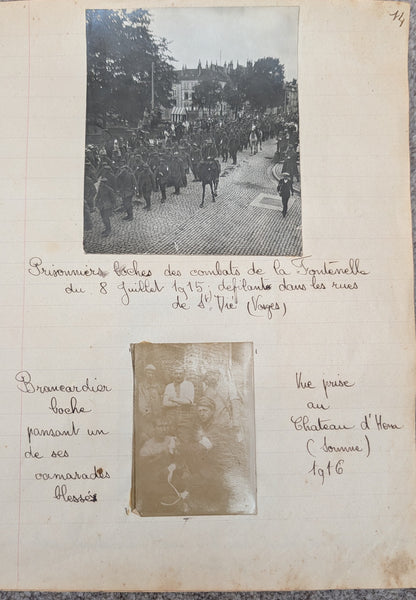 14
Prisonniers boches des combats de la Fontenelle
du 8 Juillet 1915, défilant dans les rues
de St Dié (Vosges)
Brancardier
boche
pansant un
de ses
camarades
blessés
Vue prise
au
Chateau d'Hem
(Somme)
1916